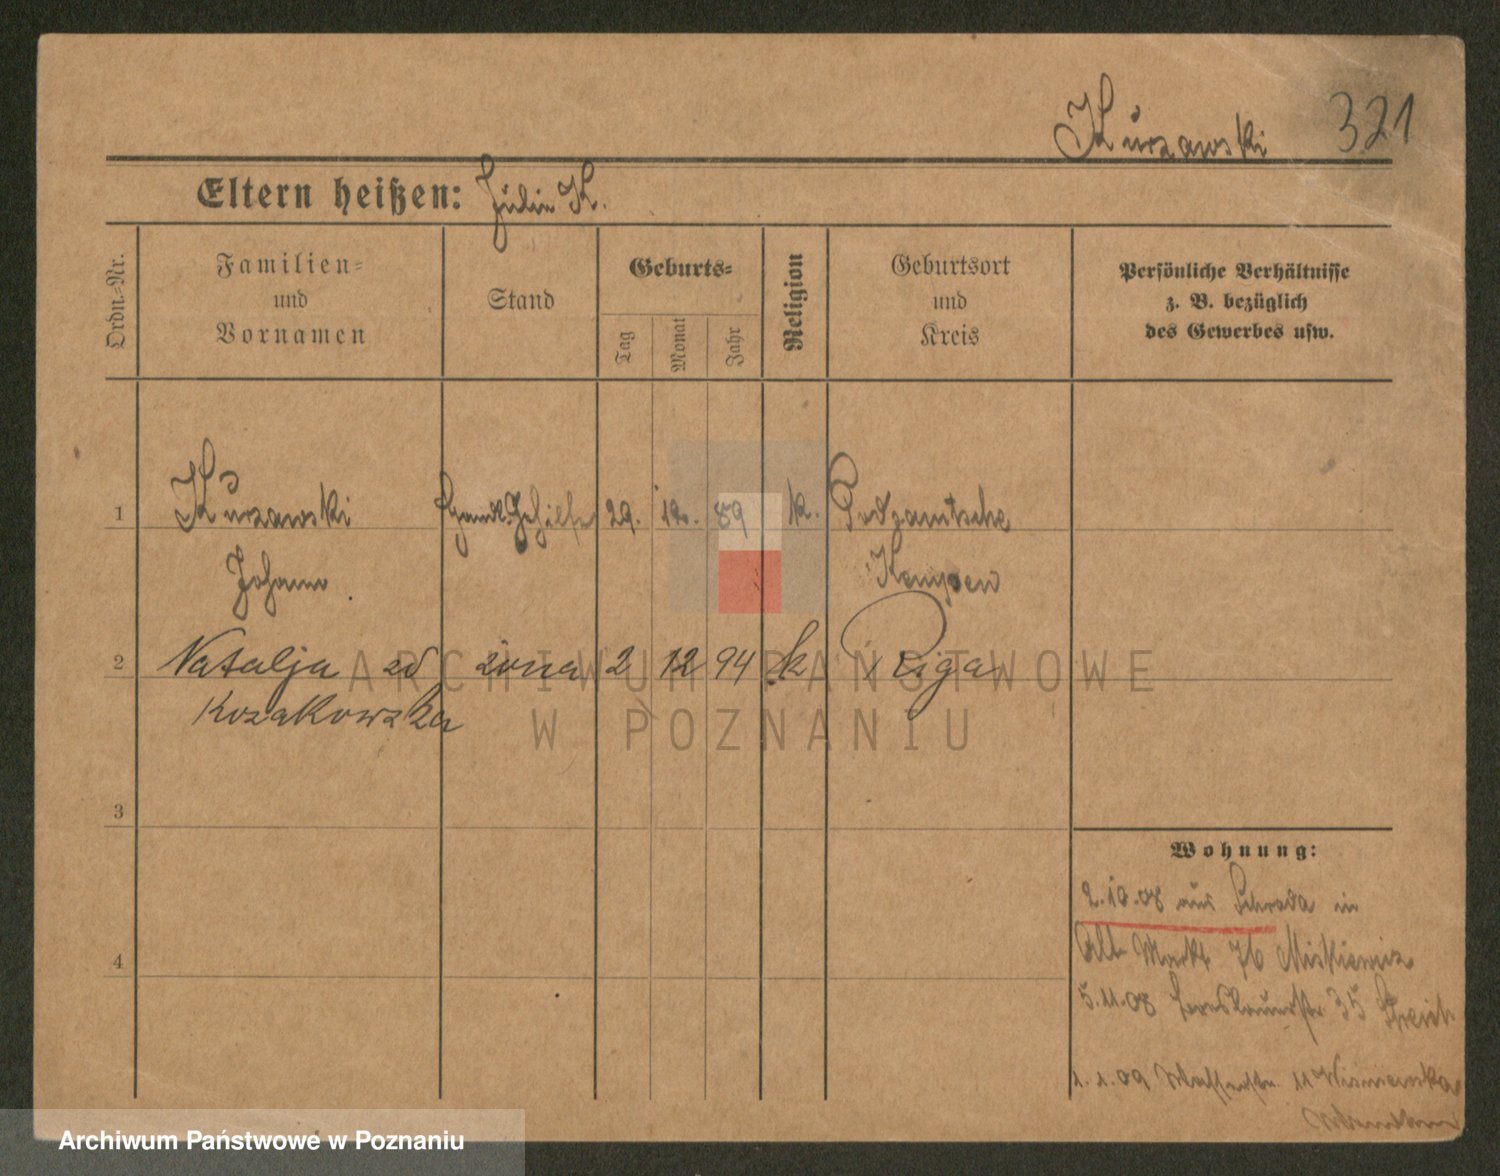 Kurzawski 321
Eltern heißen: Julie K.
Ordn.-Nr.
Familien-
und
Vornamen
Stand
Geburts-
Tag
Monat
Jahr
Religion
Geburtsort
und
Kreis
Persönliche Verhältnisse
z. B. bezüglich
des Gewerbes usw.
1 Kurzawski Handl. Gehilfe 29. 12. 89 k. Podzamtsche
Johann Kempen
2 Natalja zd żona 2 12 94 k Ryga
Kozakowska
3
4
Wohnung:
2.10.08 aus Schroda in
Alt Markt 76 Miskiewicz
5.11.08 35
1.1.09 11 Wisniewska
ARCHIWUM PAŃSTWOWE
W POZNANIU
Archiwum Państwowe w Poznaniu